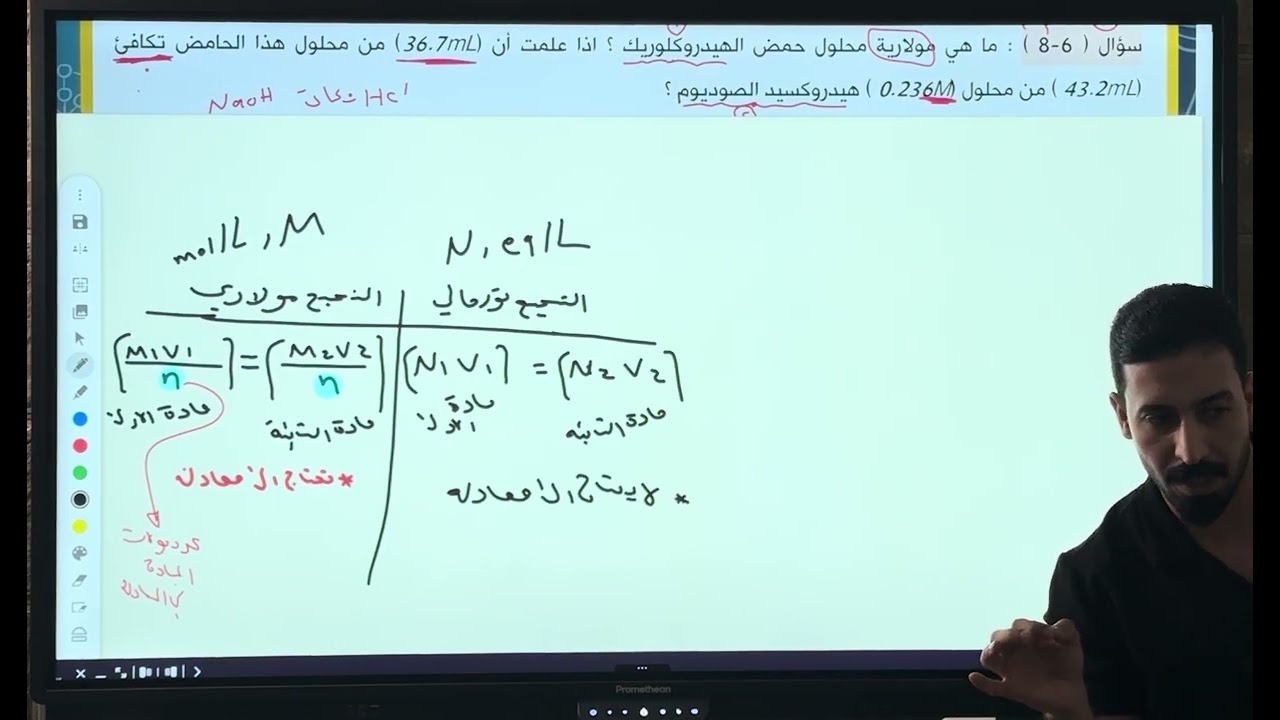 سؤال ( 6-8 ) : ما هي مولارية محلول حمض الهيدروكلوريك ؟ اذا علمت أن (36.7mL) من محلول هذا الحامض تكافئ
(43.2mL ) من محلول (0.236M ) هيدروكسيد الصوديوم ؟
NaOH تكافئ HCl
mol/L , M
N , eq/L
التسحيح مولاري
التسحيح نورمالي
[M1V1/n] = [M2V2/n]
[N1V1] = [N2V2]
مادة الاولى
مادة الثانية
مادة الاولى
مادة الثانية
* تحتاج الى معادلة
* لا يحتاج الى معادلة
عدد مولات
المادة
في المعادلة
Promethean